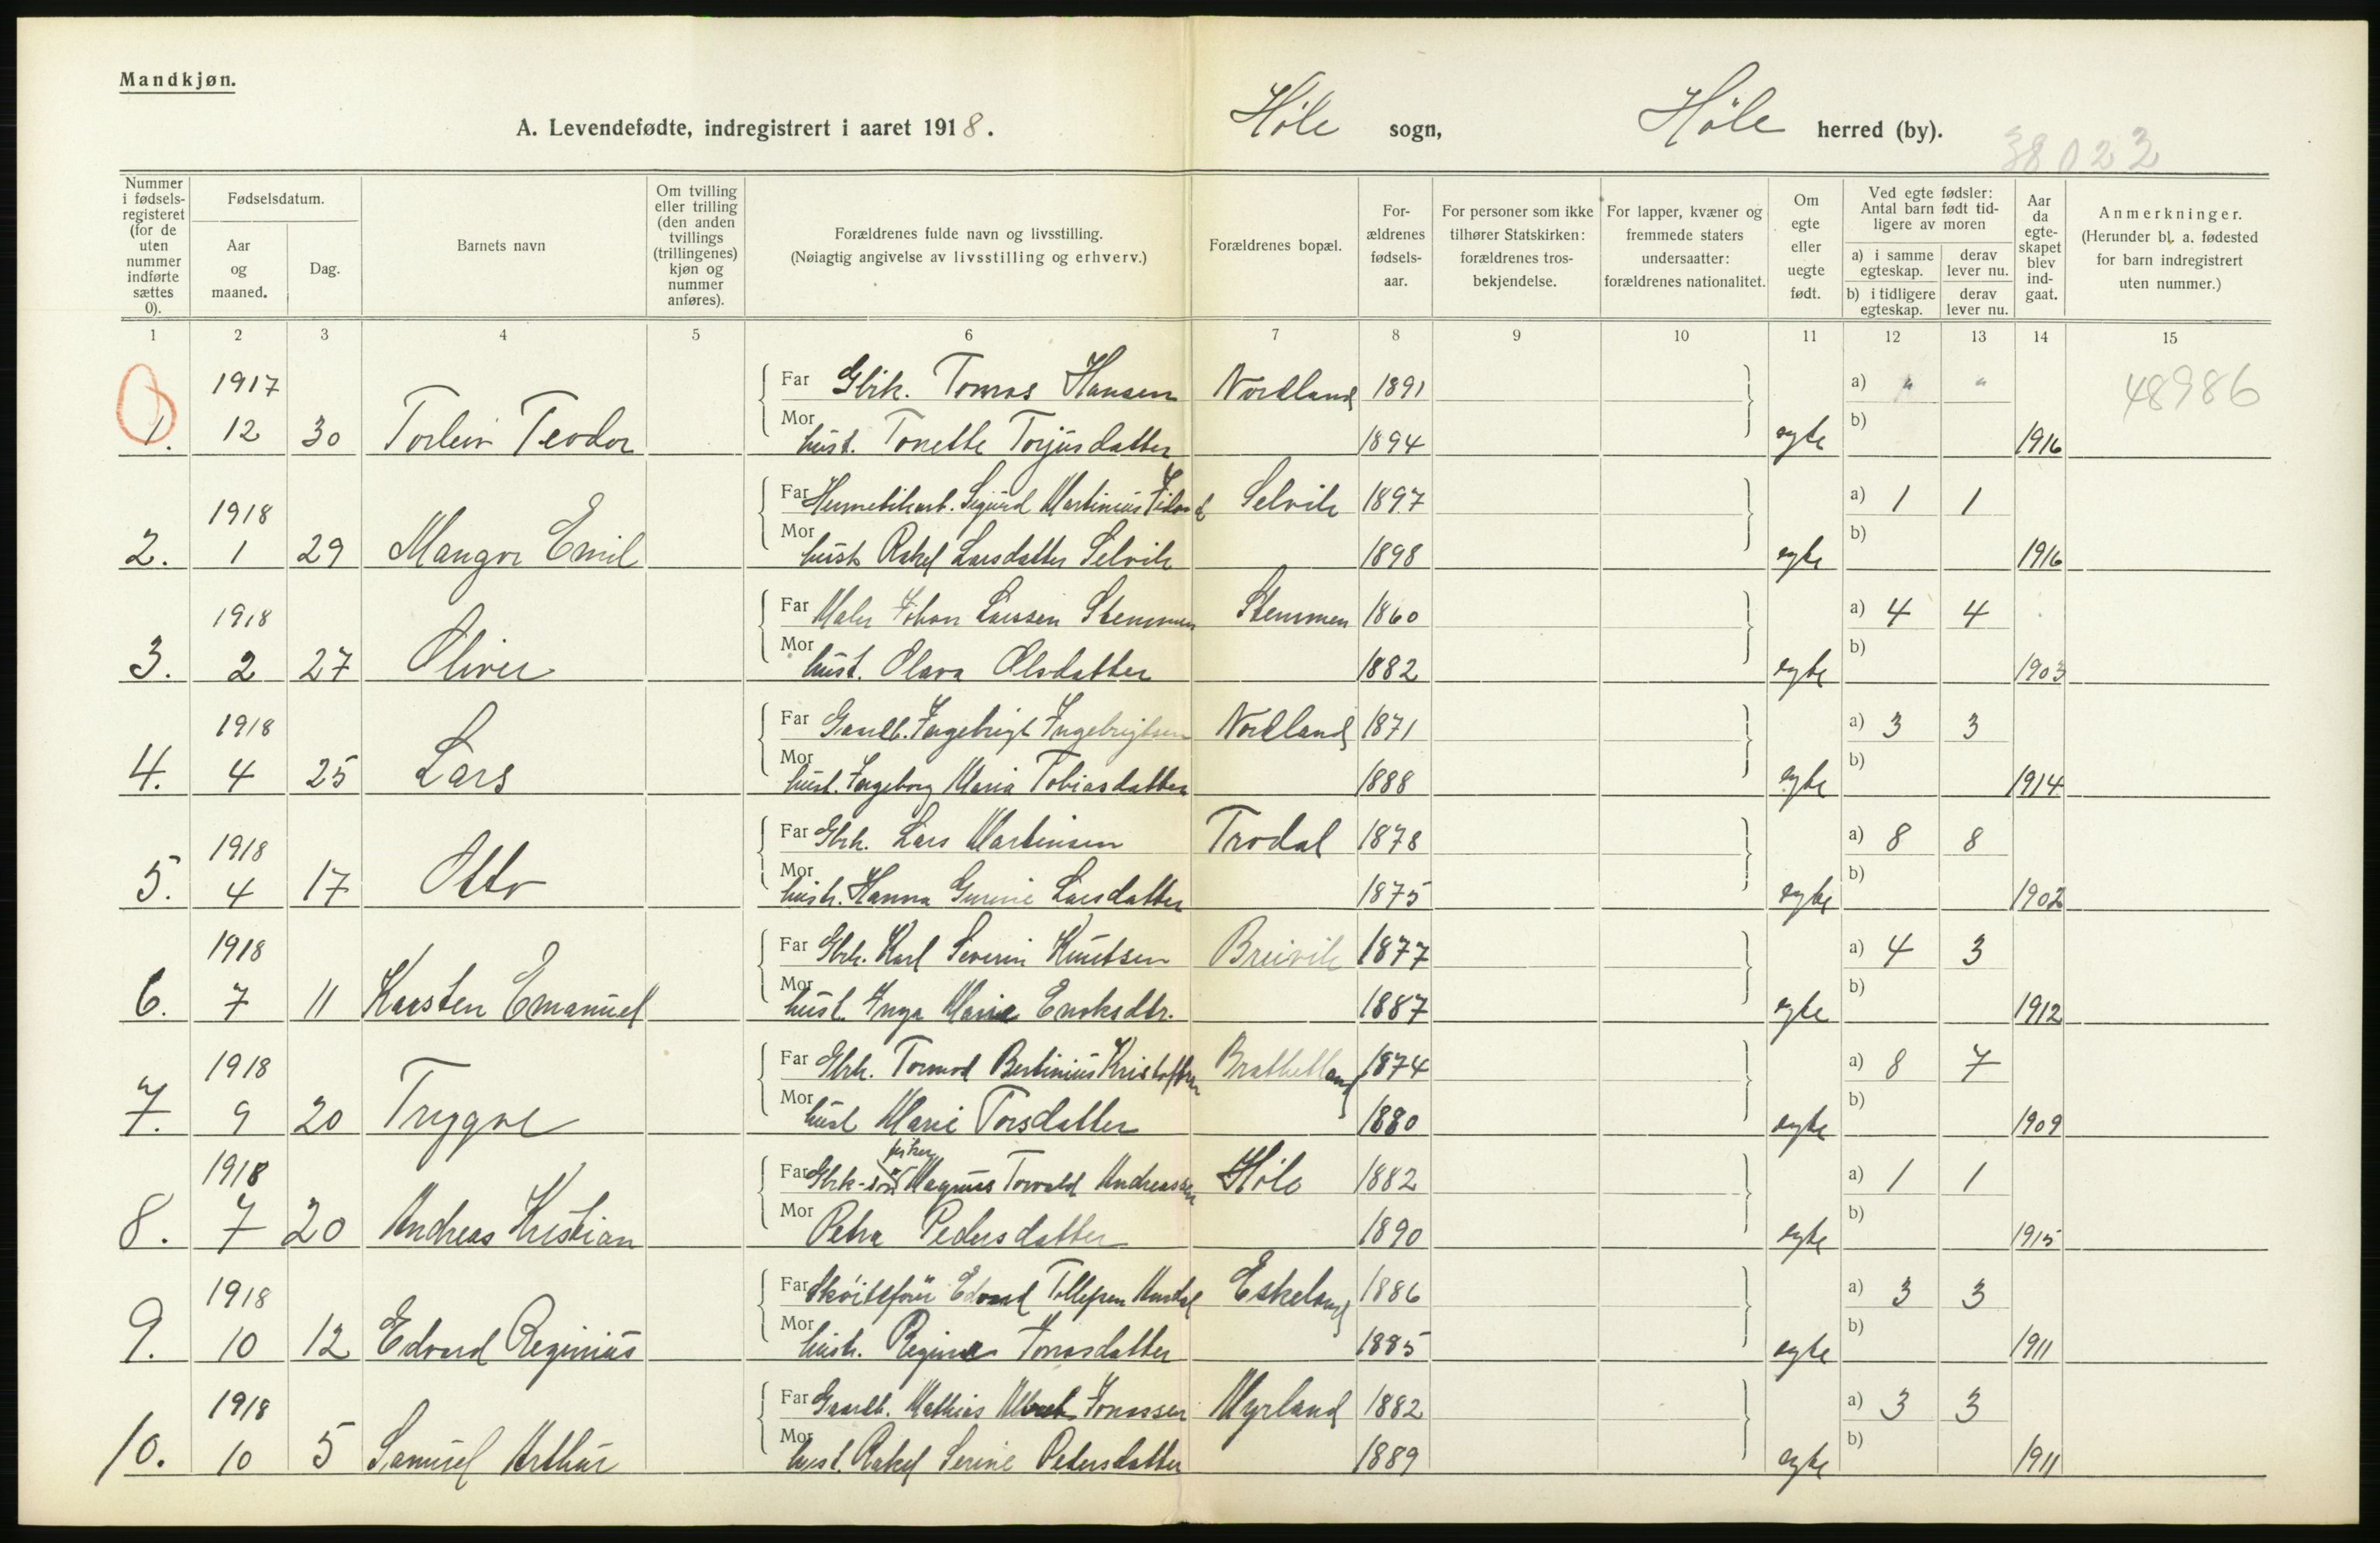 Mandkjøn.
A. Levendefødte, indregistrert i aaret 1918. Høle sogn, Høle herred (by).
38022
Nummer i fødsels-registeret (for de uten nummer indførte sættes 0).
Fødselsdatum.
Aar og maaned.
Dag.
Barnets navn
Om tvilling eller trilling (den anden tvillings (trillingenes) kjøn og nummer anføres).
Forældrenes fulde navn og livsstilling.
(Nøiagtig angivelse av livsstilling og erhverv.)
Forældrenes bopæl.
For-ældrenes fødsels-aar.
For personer som ikke tilhører Statskirken: forældrenes tros-bekjendelse.
For lapper, kvæner og fremmede staters undersaatter: forældrenes nationalitet.
Om egte eller uegte født.
Ved egte fødsler: Antal barn født tid-ligere av moren
a) i samme egteskap. derav lever nu.
b) i tidligere egteskap. derav lever nu.
Aar da egte-skapet blev ind-gaat.
Anmerkninger.
(Herunder bl. a. fødested for barn indregistrert uten nummer.)
1 2 3 4 5 6 7 8 9 10 11 12 13 14 15
1917 Far Gbrk. Tomas Hansen Nordland 1891 a) " " 48986
1. 12 30 Torleiv Teodor Mor hust. Tonette Torjusdatter 1894 egte b) 1916
1918 Far Sigurd Martinius Selvik 1897 a) 1 1
2. 1 29 Mangor Emil Mor hust. Rakel Larsdatter Selvik 1898 egte b) 1916
1918 Far Maler Johan Larssen Stemmen Stemmen 1860 a) 4 4
3. 2 27 Oliver Mor hust. Olava Olsdatter 1882 egte b) 1903
1918 Far Gaardb. Ingebrigt Ingebrigtsen Nordland 1871 a) 3 3
4. 4 25 Lars Mor hust. Ingeborg Maria Tobiasdatter 1888 egte b) 1914
1918 Far Gbrk. Lars Martinsen Trodal 1878 a) 8 8
5. 4 17 Otto Mor hustr. Hanna Gurine Larsdatter 1875 egte b) 1902
1918 Far Gbrk. Karl Severin Knutsen Breivik 1877 a) 4 3
6. 7 11 Karsten Emanuel Mor hust. Inga Marie Enoksdtr. 1887 egte b) 1912
1918 Far Gbrk. Tormod Bertinius Kristoffersen Brattetland 1874 a) 8 7
7. 9 20 Trygve Mor hust Marie Torsdatter 1880 egte b) 1909
fisker
1918 Far Gbrk-søn Magnus Torvald Andreassen Høle 1882 a) 1 1
8. 7 20 Andreas Kristian Mor Petra Pedersdatter 1890 egte b) 1915
1918 Far Skøitefører Edvard Tollefsen Eskeland 1886 a) 3 3
9. 10 12 Edvard Reginius Mor hustr. Regine Jonasdatter 1885 egte b) 1911
1918 Far Gaardb. Mathias Albert Jonassen Myrland 1882 a) 3 3
10. 10 5 Samuel Arthur Mor hust. Rakel Serine Pedersdatter 1889 egte b) 1911